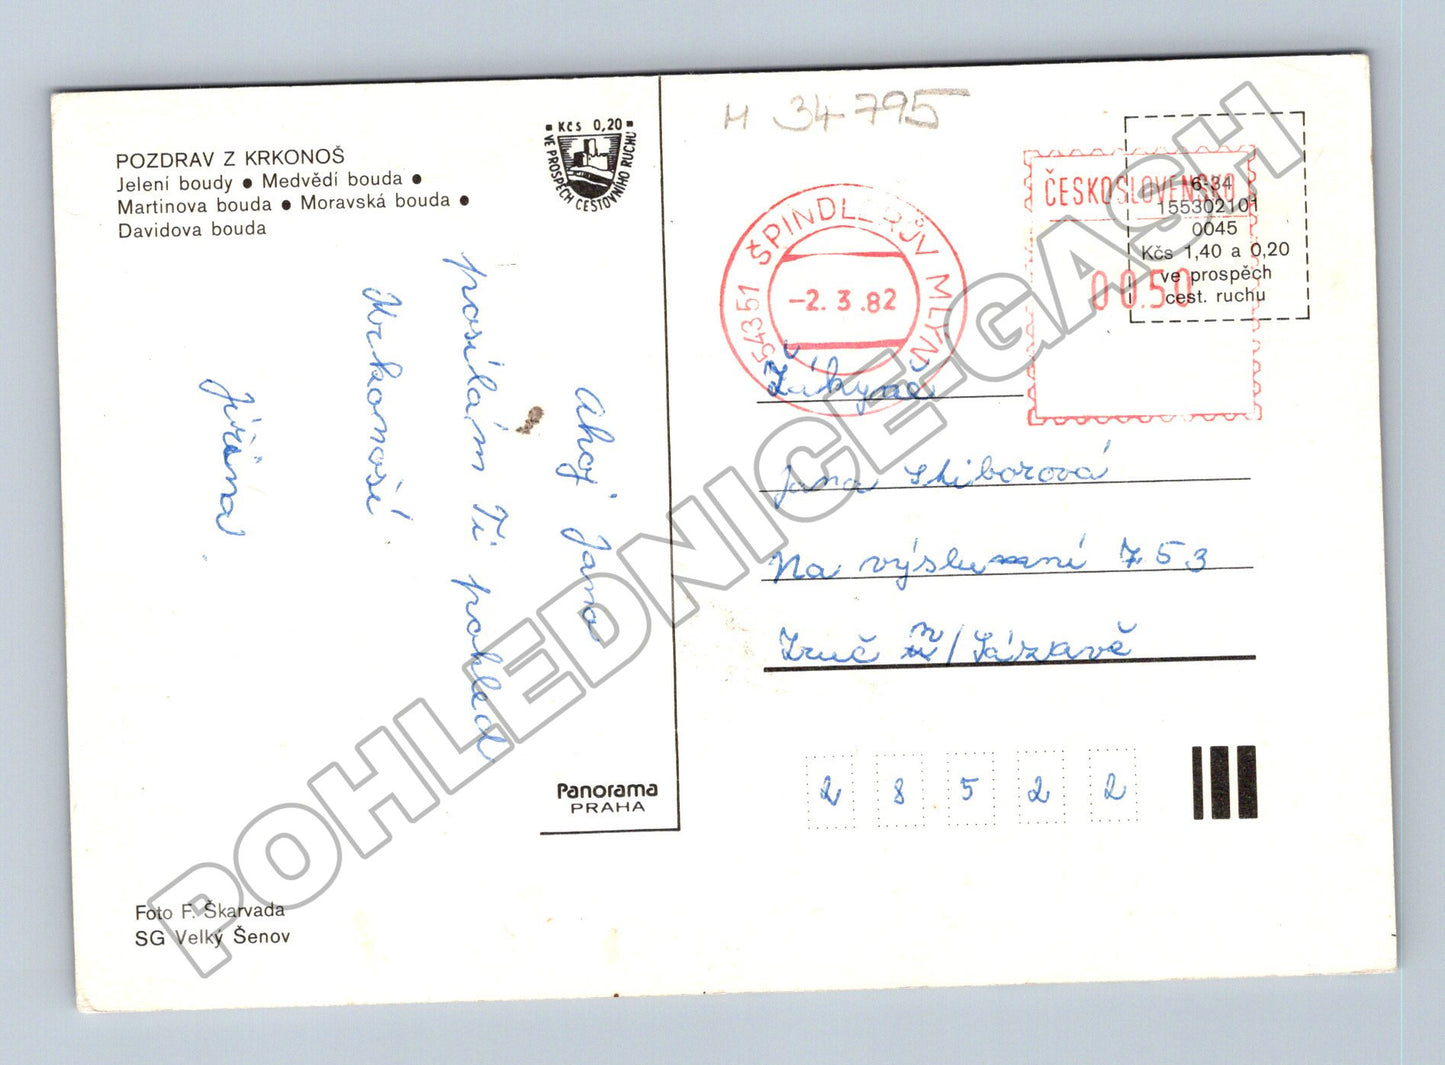 POZDRAV Z KRKONOŠ
Jelení boudy ● Medvědí bouda ●
Martinova bouda ● Moravská bouda ●
Davidova bouda
Kčs 0,20
VE PROSPĚCH CESTOVNÍHO RUCHU
Ahoj Jano
posílám Ti pohled
Krkonoší
Jiřina
Panorama
PRAHA
Foto F. Škarvada
SG Velký Šenov
M 34795
54351 ŠPINDLERŮV MLÝN
-2.3.82
ČESKOSLOVENSKO
00.50
6-34
155302101
0045
Kčs 1,40 a 0,20
ve prospěch
cest. ruchu
Žákyně
Jana Stiborová
Na výslunní 753
Zruč n/Sázavě
28522
POHLEDNICE-GASH